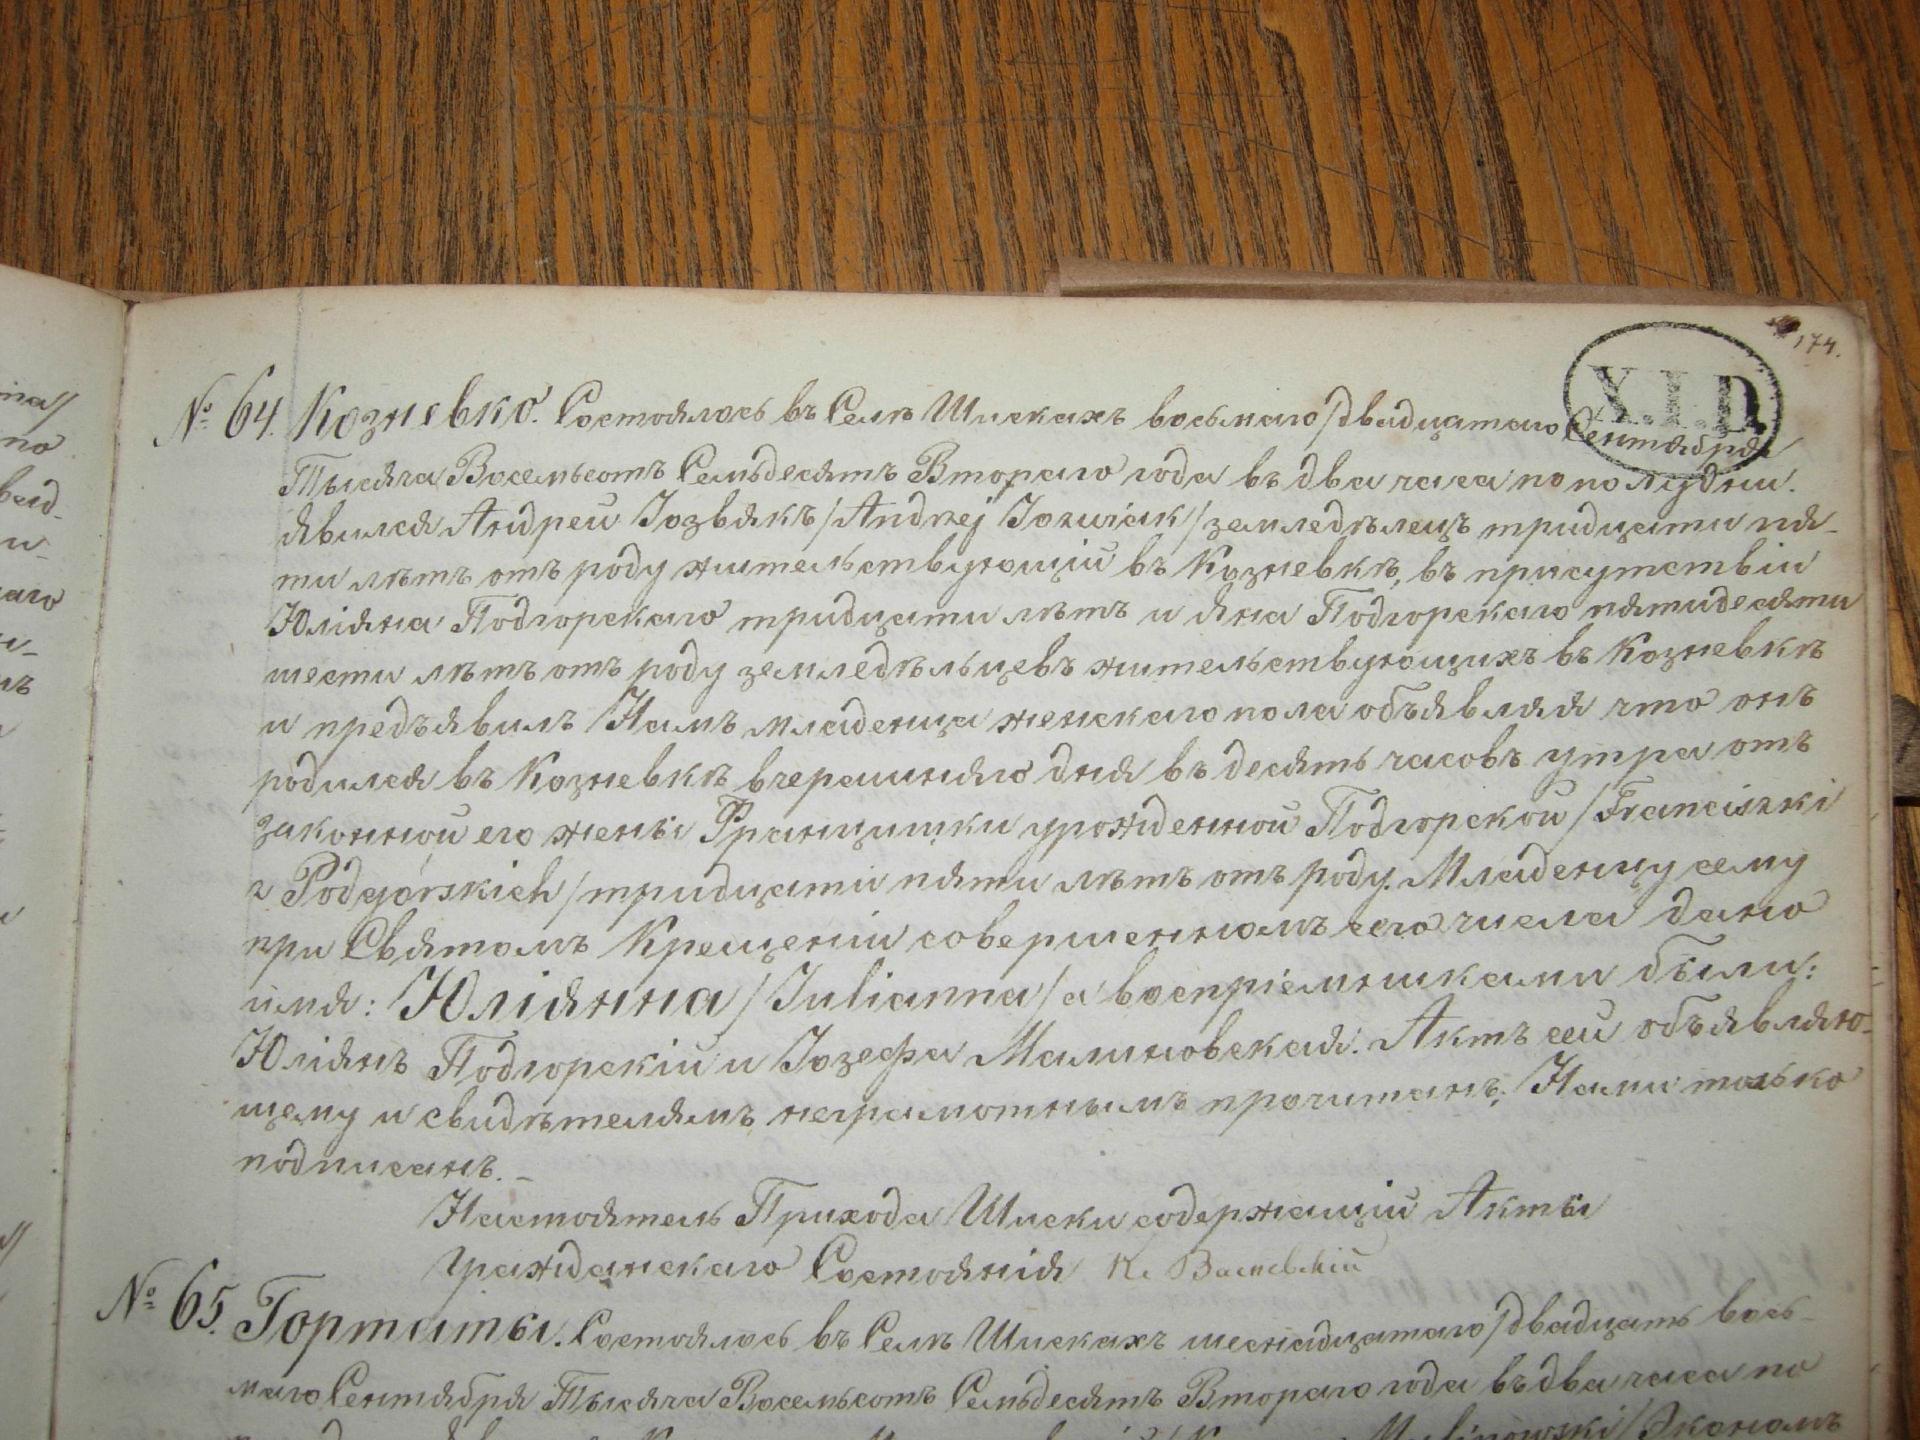 174.
X.I.D.
№ 64. Козневко. Состоялось въ Селѣ Шпскахъ восьмаго/двадцатаго Сентября
Тысяча Восемьсотъ Семьдесятъ Втораго года въ два часа по полудни.
явился Андрей Іозвякъ/Andrzej Jozwiak/земледѣлецъ тридцати пя-
ти лѣтъ отъ роду жительствующій въ Козневкѣ, въ присутствіи
Юліяна Подгорскаго тридцати лѣтъ и Яна Подгорскаго пятидесяти
шести лѣтъ отъ роду земледѣльцевъ жительствующихъ въ Козневкѣ
и предъявилъ Намъ младенца женскаго пола объявляя что онъ
родился въ Козневкѣ вчерашняго дня въ десять часовъ утра отъ
законной его жены Францишки урожденной Подгорской/Franciszki
z Podgórskich/тридцати пяти лѣтъ отъ роду. Младенцу сему
при Святомъ Крещеніи совершенномъ сего числа дано
имя: Юліянна/Julianna/а воспріемниками были:
Юліянъ Подгорскій и Іозефа Малиновская. Актъ сей объявляю-
щему и свидѣтелямъ неграмотнымъ прочитанъ; Нами только
подписанъ.-
Настоятель Прихода Шпски содержащій Акты
Гражданскаго Состоянія К.
№ 65. Гортаты. Состоялось въ Селѣ Шпскахъ шеснадцатаго/двадцать вось-
маго Сентября Тысяча Восемьсотъ Семьдесятъ Втораго года въ два часа по
Malinowski/Экономъ